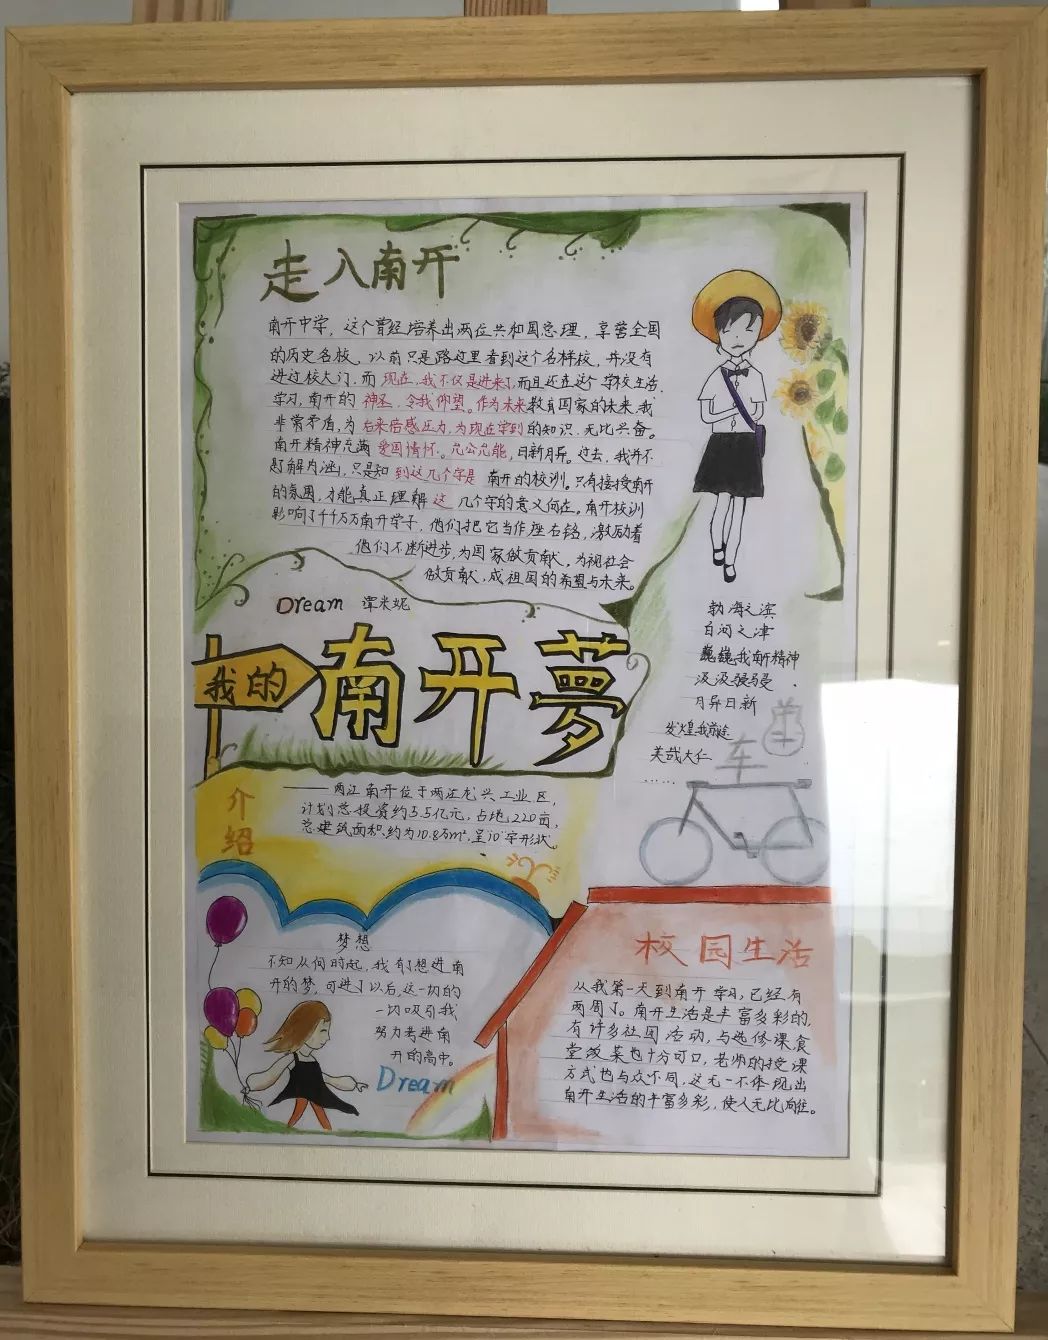 走入南开
南开中学，这个曾经培养出两位共和国总理，享誉全国
的历史名校，以前只是路过里看到这个名样校，并没有
进过校大门，而现在，我不仅是进来了，而且还在这个学校生活、
学习，南开的神圣，令我仰望。作为未来教育国家的未来，我
非常矛盾，为后来倍感压力，为现在学到的知识，无比兴奋。
南开精神充满爱国情怀。允公允能，日新月异。过去，我并不
了解内涵，只是知到这几个字是南开的校训。只有接受南开
的氛围，才能真正理解这几个字的意义何在。南开校训
影响了千千万万南开学子，他们把它当作座右铭，激励着
他们不断进步，为国家做贡献，为祖社会
做贡献，成祖国的希望与未来。
Dream 谭米妮
我的南开夢
勃海之滨
白河之津
巍巍我南开精神
汲汲骎骎
月异日新
发煌我前途
美哉大仁
……
单
车
介
绍
——两江南开位于两江龙兴工业区，
计划总投资约5.5亿元，占地220亩，
总建筑面积约为10.8万m²，呈“10”字形状。
梦想
不知从何时起，我有了想进南
开的梦，可进了以后，这一切的
一切吸引我
努力考进南
开的高中。
Dream
校园生活
从我第一天到南开学习，已经有
两周了。南开生活是丰富多彩的，
有许多社团活动，与选修课食
堂饭菜也十分可口，老师的授课
方式也与众不同，这无一不体现出
南开生活的丰富多彩，使人无比向往。